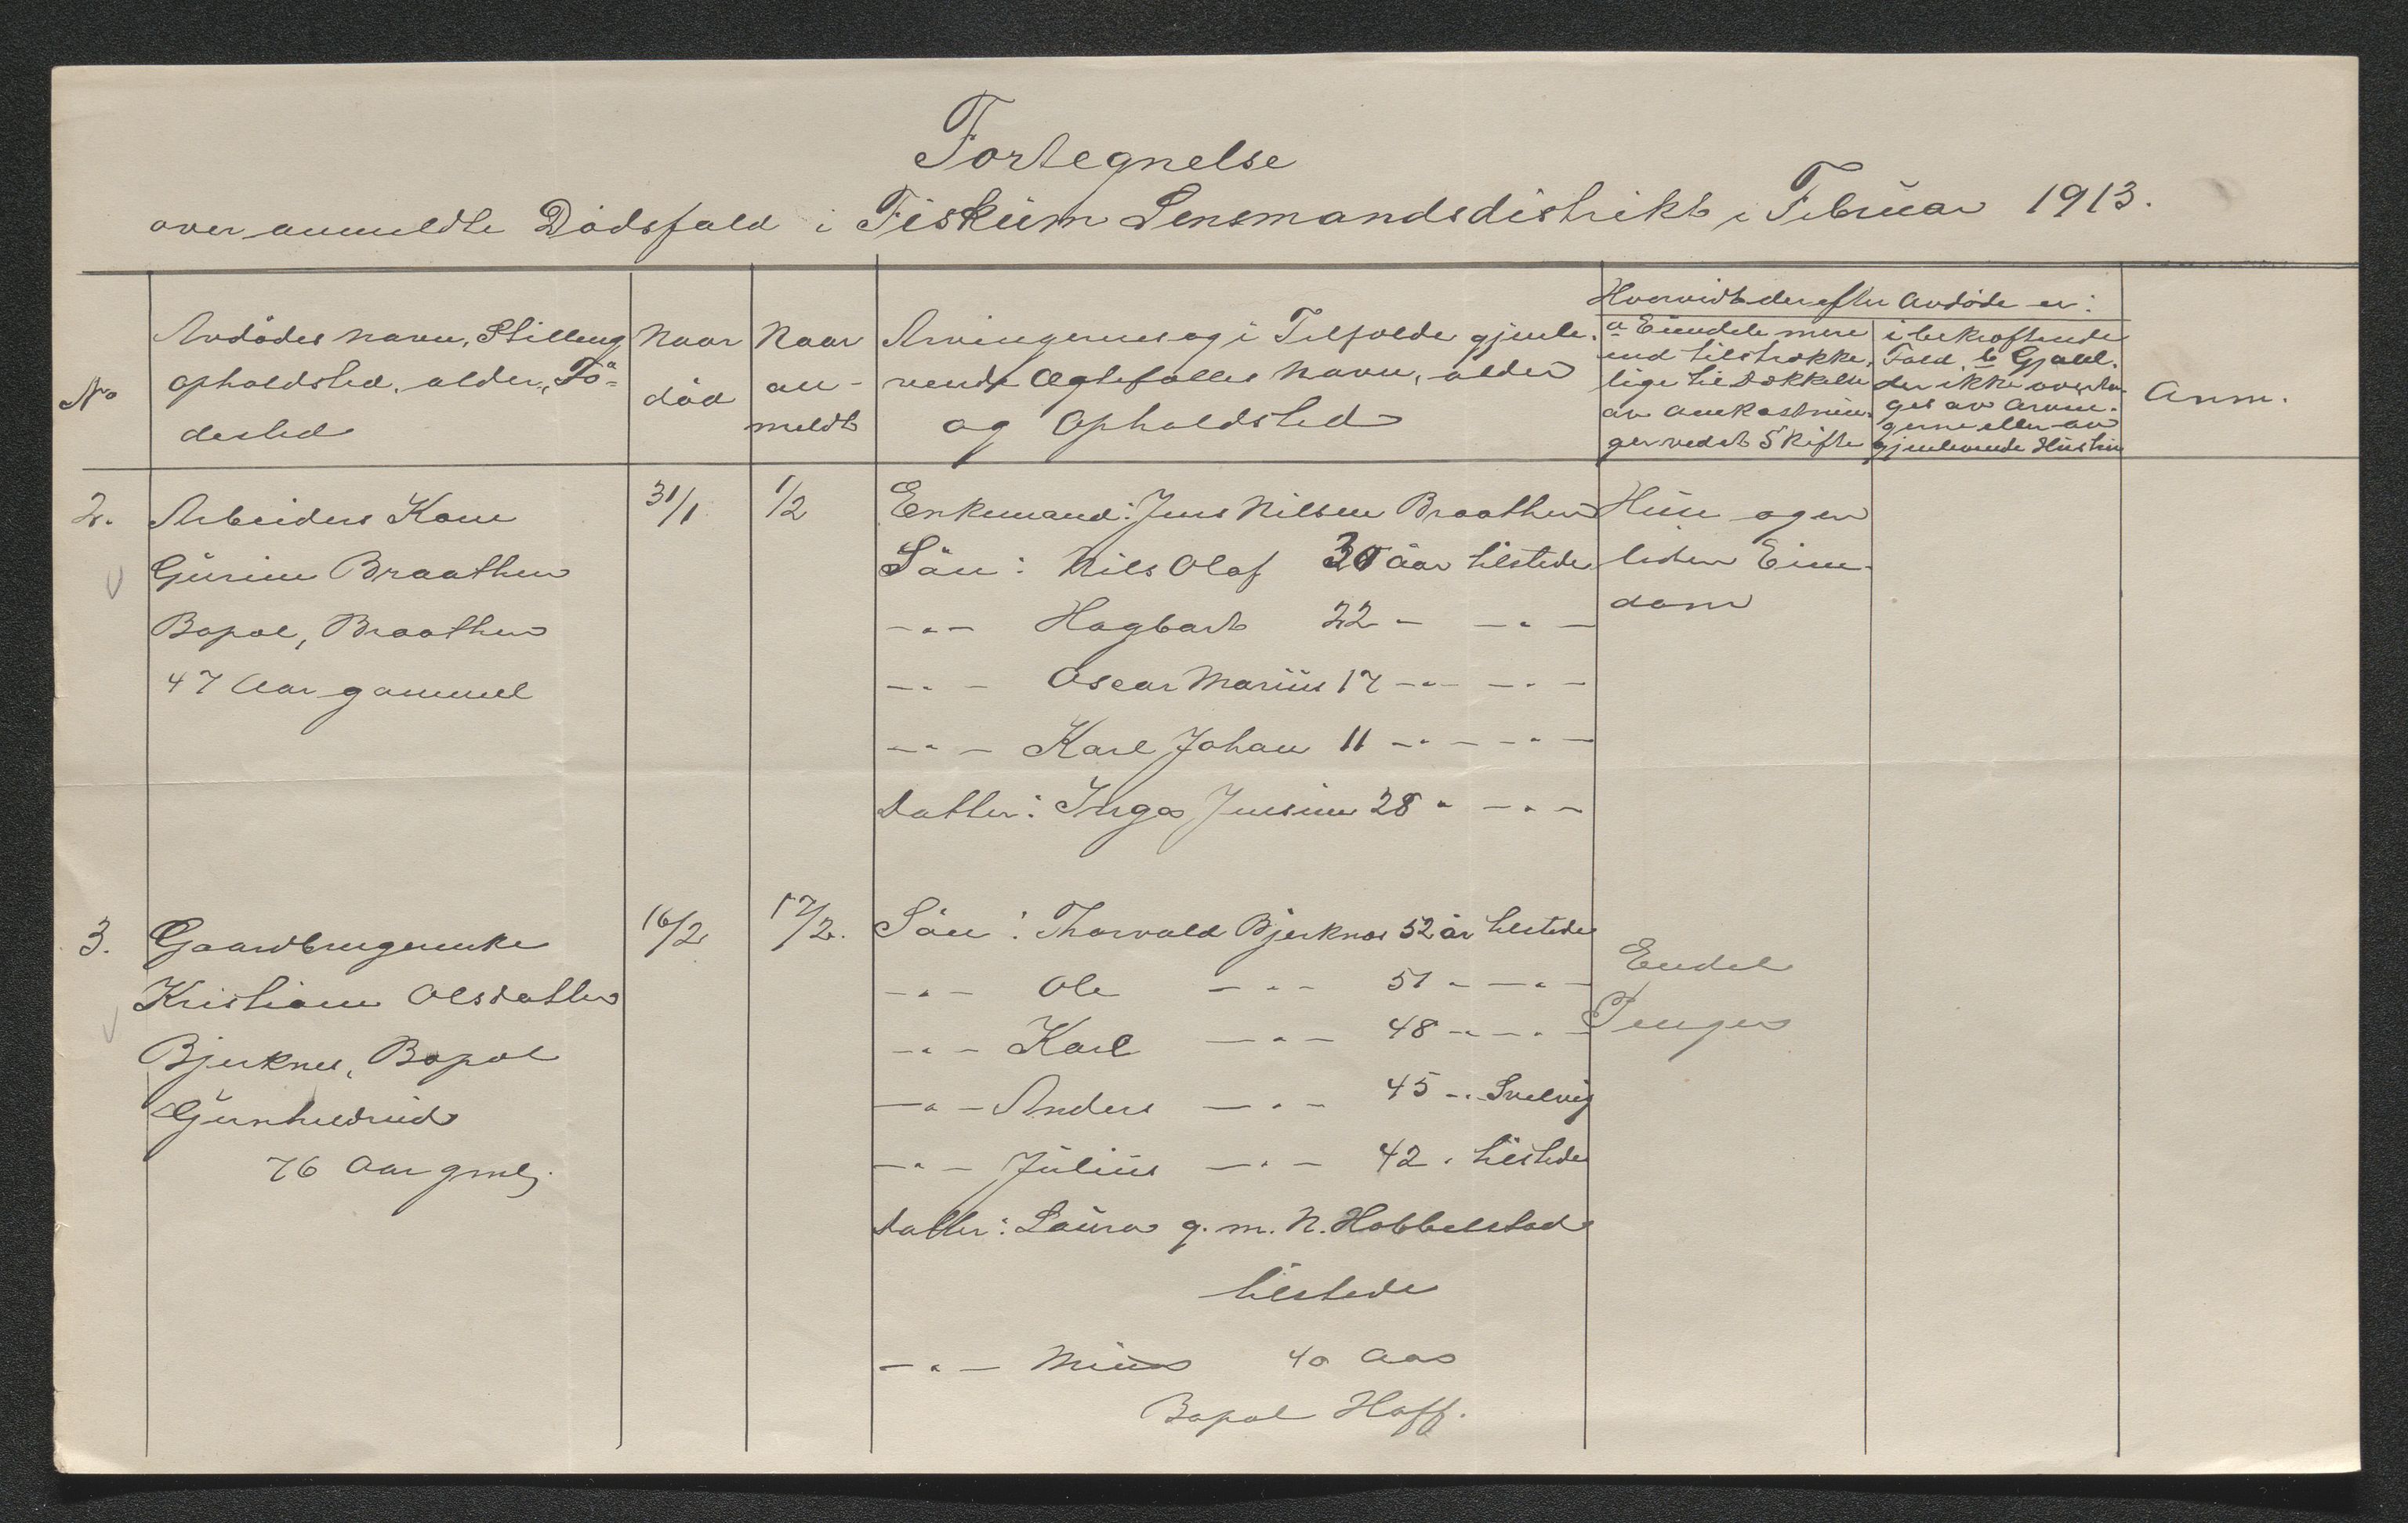 Fortegnelse
over anmeldte Dödsfald i Fiskum Lensmandsdistrikt i Februar 1913.
No
Avdödes navn, Stilling
Opholdsted, alder, Fö-
dested
Naar
död
Naar
an-
meldt
Arvingernes og i Tilfælde gjenle-
vende Ægtefælles Navn, alder
og Opholdsted
Hvorvidt der efter avdöde er:
a Eiendele mere
end tilstrække-
lige til Dækkelse
av Omkostnin-
ger ved et Skifte
i bekræftende
Fald, b Gjæld,
der ikke overta-
ges av arvin-
gerne eller av
gjenlevende Hustru
Anm.
2.
Arbeiders Kone
Gurine Braathen
Bopæl, Braathen
47 Aar gammel
31/1
1/2
Enkemand: Jens Nilsen Braathen
Sön: Nils Olaf 30 Aar tilstede
-"- Hagbart 22 - -"-
-"- Oscar Marius 17 -"- -"-
-"- Karl Johan 11 -"- -"-
Datter: Inga Jensine 28 " -"-
Hus og en
liden Eien-
dom
3.
Gaardbrugerenke
Kristiane Olsdatter
Bjerknes, Bopæl
Gunhildrud
76 Aar gml.
16/2
17/2.
Sön: Thorvald Bjerknes 52 år tilstede
-"- Ole -"- 51 - -"-
-"- Karl -"- 48 -"- -"-
-"- Anders -"- 45 -"- Svelvig
-"- Julius -"- 42 " tilstede
Datter: Laura g. m. N. Hobbelstad
tilstede
-"- Mina 40 Aar
Bopæl Hoff.
Endel
Penger